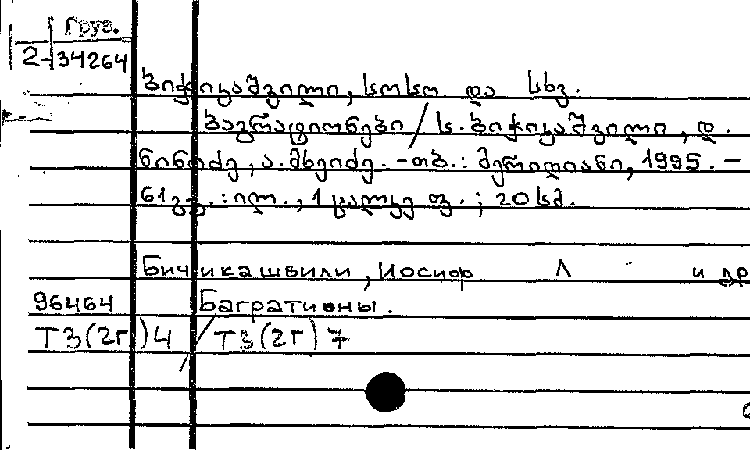 Груз.
2-34264
ბიჭიკაშვილი, სოსო და სხვ.
ბაგრატიონები / ს. ბიჭიკაშვილი, დ.
ნინიძე, ა. მხეიძე. - თბ. : მერიდიანი, 1995. -
61 გვ. : ილ., 1 ცალკე ფ. ; 20 სმ.
Бичикашвили, Иосиф и др
96464 Багратионы.
ТЗ(2Г)4 / ТЗ(2Г)7